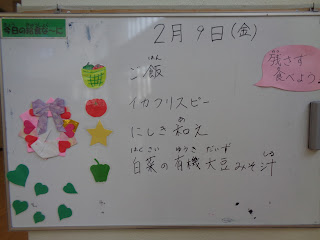 今日の給食な〜に
2月9日(金)
残さず
食べよう。
ご飯
イカフリスピー
にしき和え
白菜の有機大豆みそ汁